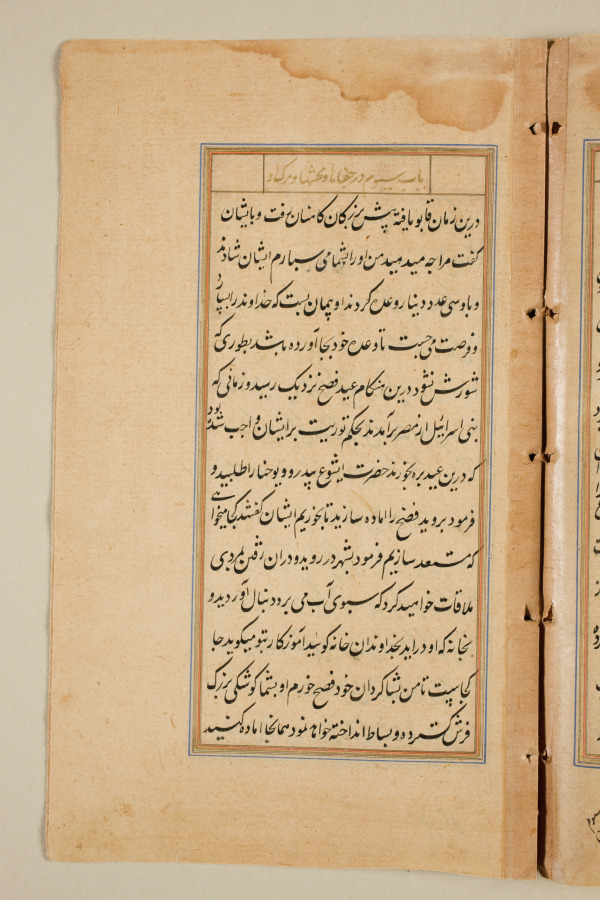 باب سیوم در جفاها و محنتها و مرگ او
درین زمان قابو یافته پیش بزرگان کاهنان رفت و بایشان
گفت مرا چه میدهید من او را بشما می سپارم ایشان شاد شدند
و باو سی عدد دینار وعده کردند او پیمان بست که خداوند را بسپارد
و فرصت می جست تا وعده خود بجا آورده باشد بطوری که
شورش نشود درین هنگام عید فصح نزدیک رسید و زمانی که
بنی اسرائیل از مصر برآمدند بحکم توریت برایشان واجب شده بود
که درین عید بره بخورند حضرت ایشوع پیدرو و یوحنا را طلبید و
فرمود بروید فصح را اماده سازید تا بخوریم ایشان گفتند کجا میخواهی
که مستعد سازیم فرمود بشهر در روید و دران رفتن بمردی
ملاقات خواهید کرد که سبوی آب می برد دنبال او روید و
بخانه که او دراید بخداوندان خانه گوئید آموزکار بتو میکوید جا
کجاست تا من بشاکردان خود فصح خورم او بشما کوشکی بزرگ
فرش کسترده و بساط انداخته خواهد نمود همانجا اماده کنید